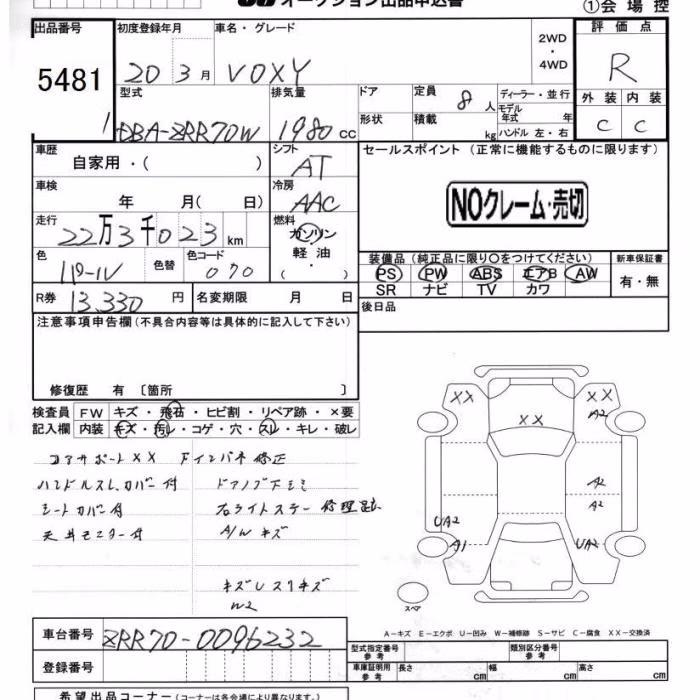 オークション出品申込書
①会場控
出品番号
5481
1
初度登録年月
20 3月
車名・グレード
VOXY
2WD
・
4WD
評価点
R
外装 内装
C C
型式
DBA-ZRR70W
排気量
1980 cc
ドア
形状
定員
8 人
積載
kg
ディーラー・並行
モデル年式 年
ハンドル 左・右
車歴
自家用・( )
シフト
AT
車検
年 月( 日)
冷房
AAC
走行
22万3千023km
燃料
ガソリン
軽油
( ・ )
色
パール
色替
色コード
070
R券 13,330 円
名変期限 月 日
セールスポイント (正常に機能するものに限ります)
NOクレーム・売切
装備品 (純正品に限り○をつけてください)
PS PW ABS エアB AW
SR ナビ TV カワ
新車保証書
有・無
後日品
注意事項申告欄 (不具合内容等は具体的に記入して下さい)
修復歴 有 〔箇所 〕
検査員 FW キズ・飛石・ヒビ割・リペア跡・×要
記入欄 内装 キズ・汚レ・コゲ・穴・スレ・キレ・破レ
コアサポートXX
ハンドルスレ カバー付
シートカバー付
天井モニター付
ドアノブ下ミミ
右ライトステー 修理
A/W キズ
W2
XX
XX
XX
A2
A2
A2
UA2
A1
UA2
スペア
A-キズ E-エクボ U-凹み W-補修跡 S-サビ C-腐食 XX-交換済
車台番号 ZRR70-0096232
登録番号
型式指定番号
参考
類別区分番号
参考
車庫証明用
参考
長さ cm
幅 cm
高さ cm
希望出品コーナー (コーナーは各会場により異なります。)